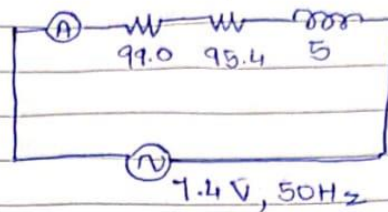 A
99.0 95.4 5
7.4 V, 50Hz